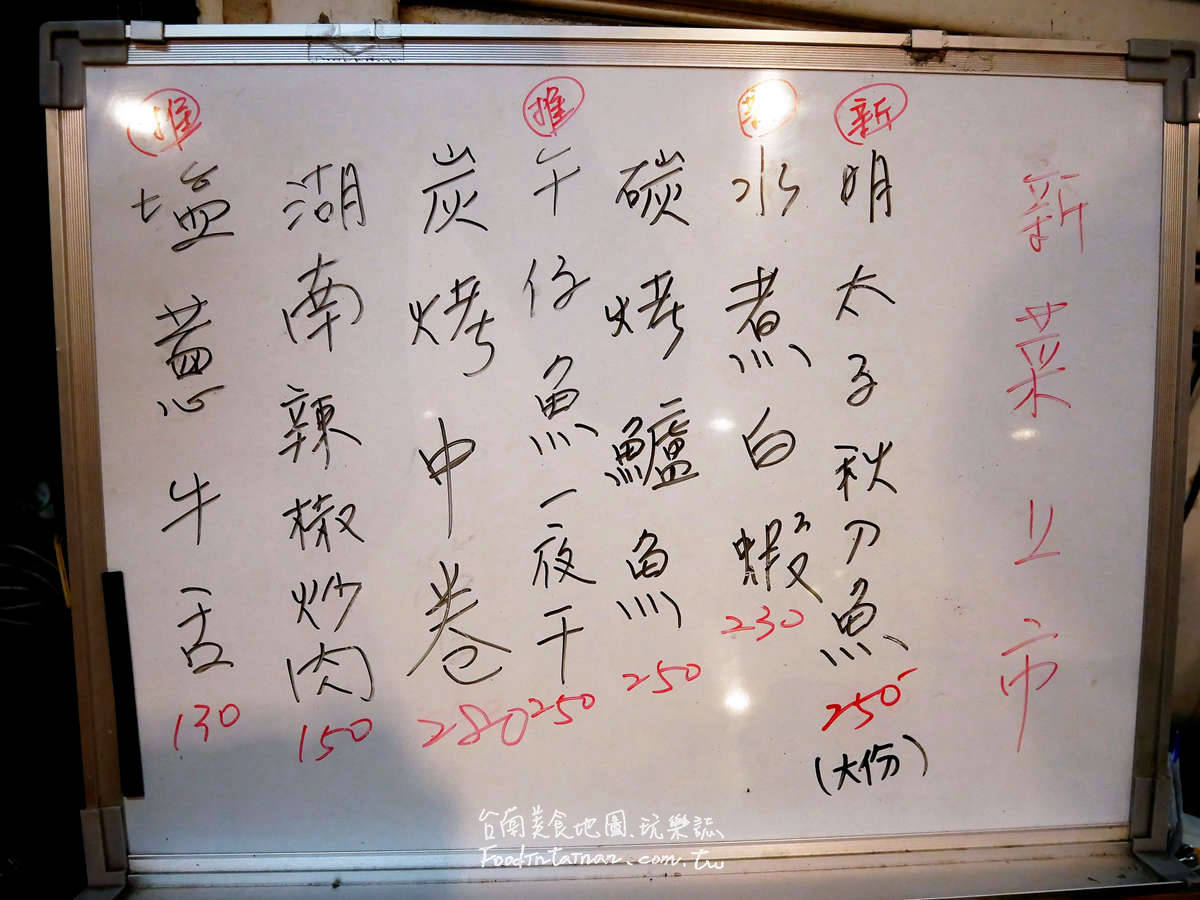 新菜上市
新
明太子秋刀魚
250
(大份)
新
水煮白蝦
230
碳烤鱸魚
250
推
午仔魚一夜干
250
炭烤中卷
280
湖南辣椒炒肉
150
推
塩蔥牛舌
130
台南美食地圖.玩樂誌
FoodinTainan.com.tw